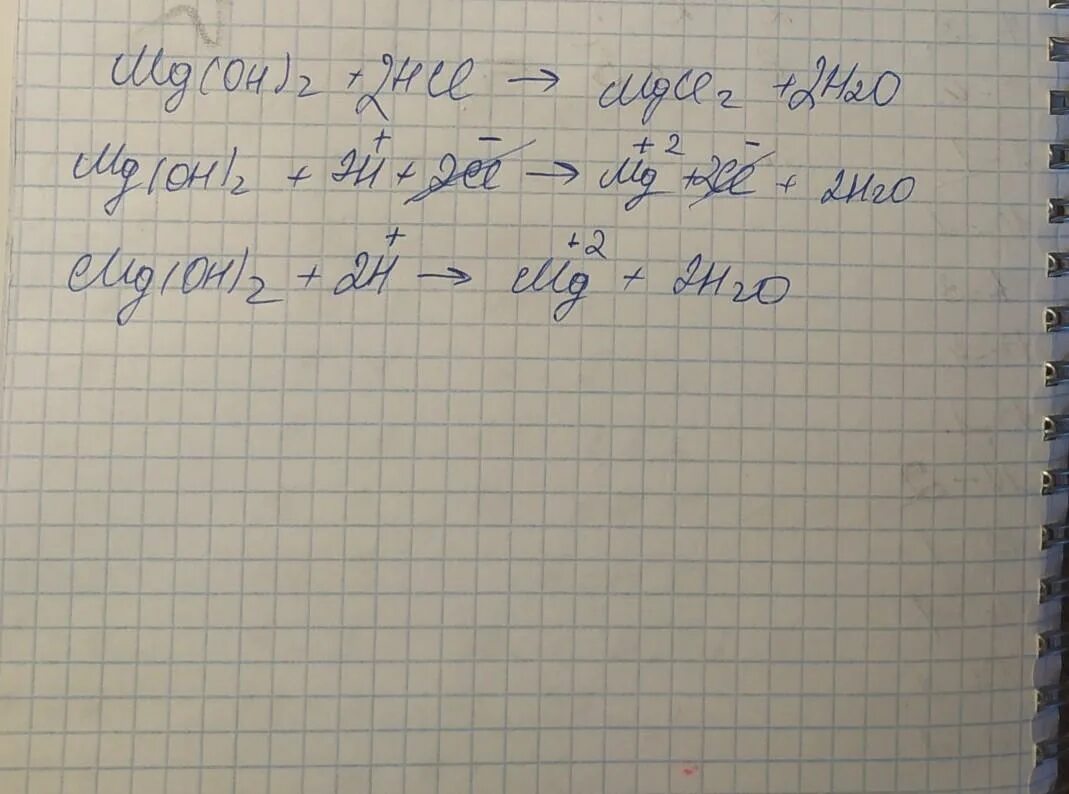 Mg(OH)₂ + 2HCl → MgCl₂ + 2H₂O
Mg(OH)₂ + 2H⁺ + 2Cl⁻ → Mg⁺² + 2Cl⁻ + 2H₂O
Mg(OH)₂ + 2H⁺ → Mg⁺² + 2H₂O